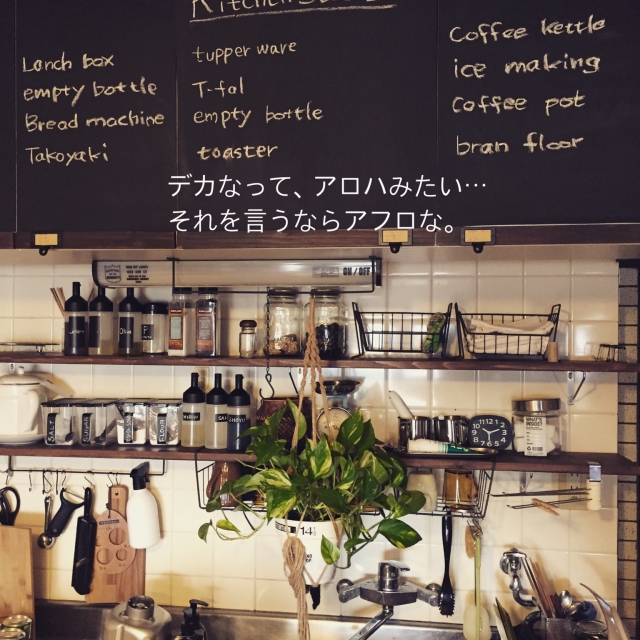 Kitchen
Lanch box
empty bottle
Bread machine
Takoyaki
tupper ware
T-fal
empty bottle
toaster
Coffee kettle
ice making
Coffee pot
bran floor
デカなって、アロハみたい…
それを言うならアフロな。
ON/OFF
SALT
FLOUR
14